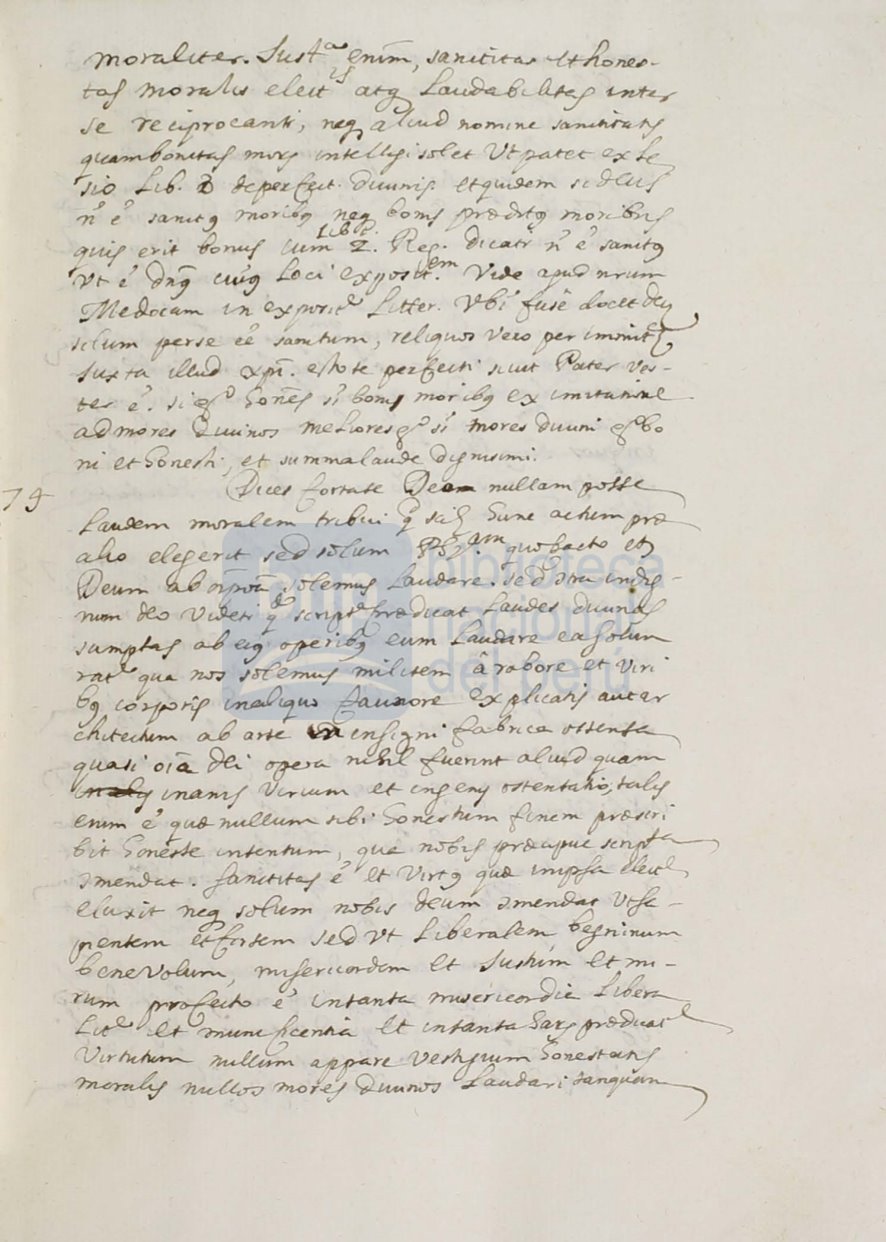 moraliter. Just.ᵃ enim, sanctitas et hones-
tas moralis elect.ⁱˢ atq laudabilitas inter
se reciprocanti, neq aliud nomine sanctitatis
quam bonitas moris intelligi solet Ut patet ex Le
sio Lib. 2 de perfect. divinis et quidem si deus
n e sanctq moribq neq bonis præditq moribus
quis erit bonus cum Lib. 2. Reg. dicatr n e sanctq
Ut e dnq cuiq Loci exposit.ᵉᵐ Vide apud nrum
Medocam in exposit Litter. Vbi fuse docet deu
solum per se ee sanctum, reliquos vero per imitat
Juxta illud xpi. estote perfecti sicut Pater ves-
ter e. si homes st boni moribq ex imitatione
ad mores Divinos meliores st mores divini bo
ni et honesti, et summa laude dignisimi.
79 Dices fortase Deo nullam posse
Laudem moralem tribui q hunc actum præ
alio elegerit sed solum Phy.ᵃᵐ quo pacto et
Deum ab solemus Laudare. sed indig-
num deo Videri q script prædicat Laudes divinas
sumptas ab eiq operibq eum Laudare ea solum
rat qua nos solemus militem â robore et Viri
bq corporis in aliquo explicatis aut ar
chitectum ab arte in insigni fabrica ostensa
quasi oia dei opera nihil fuerint aliud quam
inanis Virium et ingenij ostentatio, talis
enim e quæ nullum sibi honestum finem præscri
bit honeste intentum, qua nobis præcipue scripta
omendat. Sanctitas e et Virtq quæ in ipsa elect
eluxit neq solum nobis deum omendat Ut sa-
pientem et fortem sed Ut Liberalem begninum
benevolum, misericordem et Justum et mi-
rum profecto e in tanta misericordie Libera
Lit et munificentia et in tanta harq prædicat
Virtutum nullum appare Vestigium honestatis
moralis nullos mores divinos Laudari tanquam